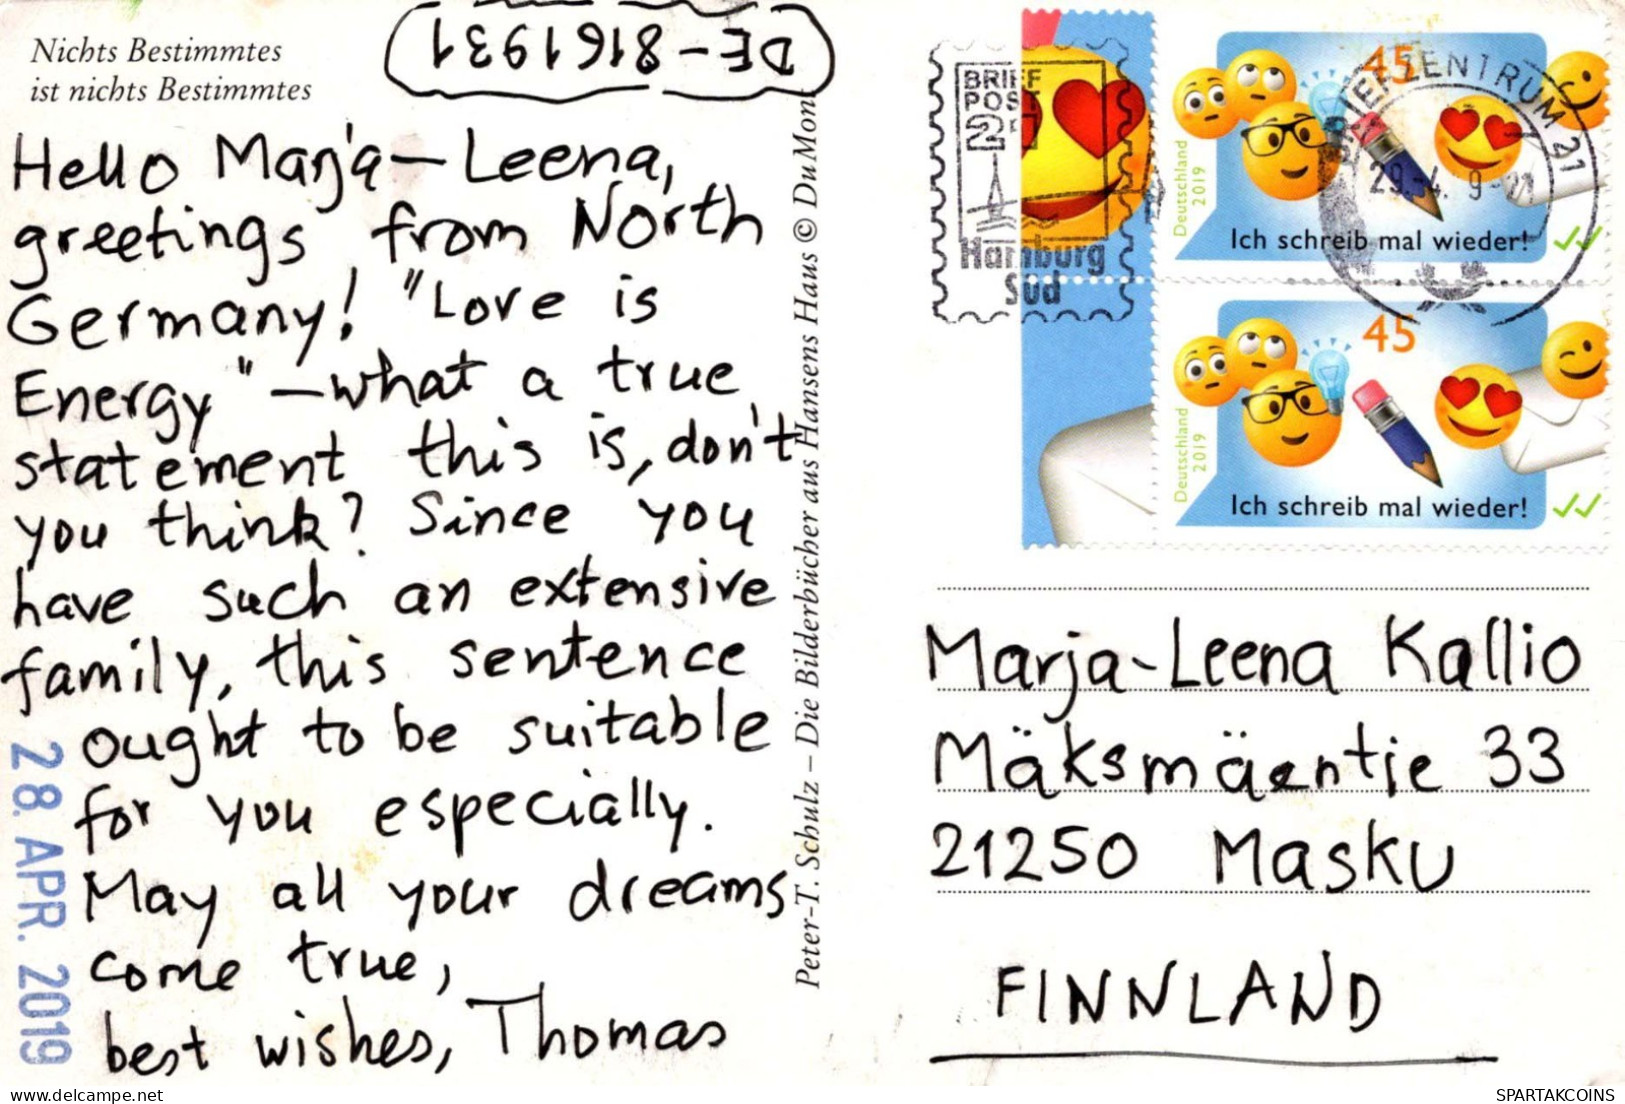 Nichts Bestimmtes
ist nichts Bestimmtes
DE-8161931
Hello Marja-Leena,
greetings from North
Germany! "Love is
Energy" - what a true
statement this is, don't
you think? Since you
have such an extensive
family, this sentence
ought to be suitable
for you especially.
May all your dreams
come true,
best wishes, Thomas
28. APR. 2019
Peter-T. Schulz – Die Bilderbücher aus Hansens Haus © DuMont
BRIEF
POST
Hamburg
Süd
BRIEFZENTRUM 21
45
Deutschland
2019
Ich schreib mal wieder!
45
Deutschland
2019
Ich schreib mal wieder!
Marja-Leena Kallio
Mäksmäentie 33
21250 Masku
FINNLAND
SPARTAKCOINS